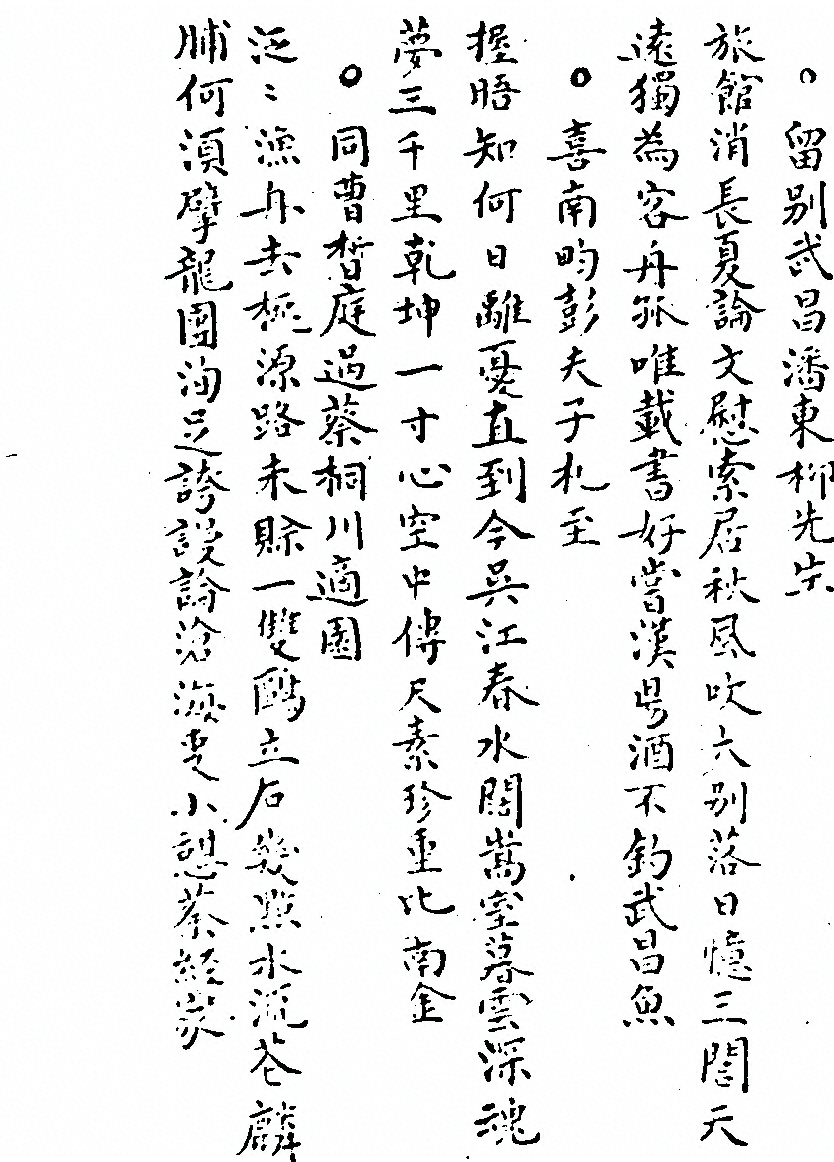 ○留别武昌潘東柳先生
旅館消長夏論文慰索居秋風吹大别落日憶三閭天
遠獨為客舟孤唯載書好嘗漢皋酒不釣武昌魚
○喜南畇彭夫子札至
握晤知何日離憂直到今吳江春水闊嵩室暮雲深魂
夢三千里乾坤一寸心空中傳尺素珍重比南金
○同曹晳庭過蔡桐川適園
泛〻漁舟去桃源路未賖一雙鷗立石幾點水流花麟
脯何須擘龍團洵足誇謾論滄海变小憇蔡經家